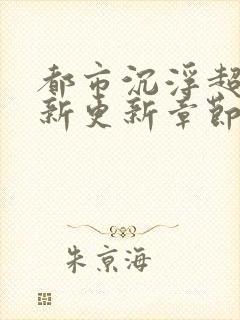 都市沉浮超
新更新章节
朱京海